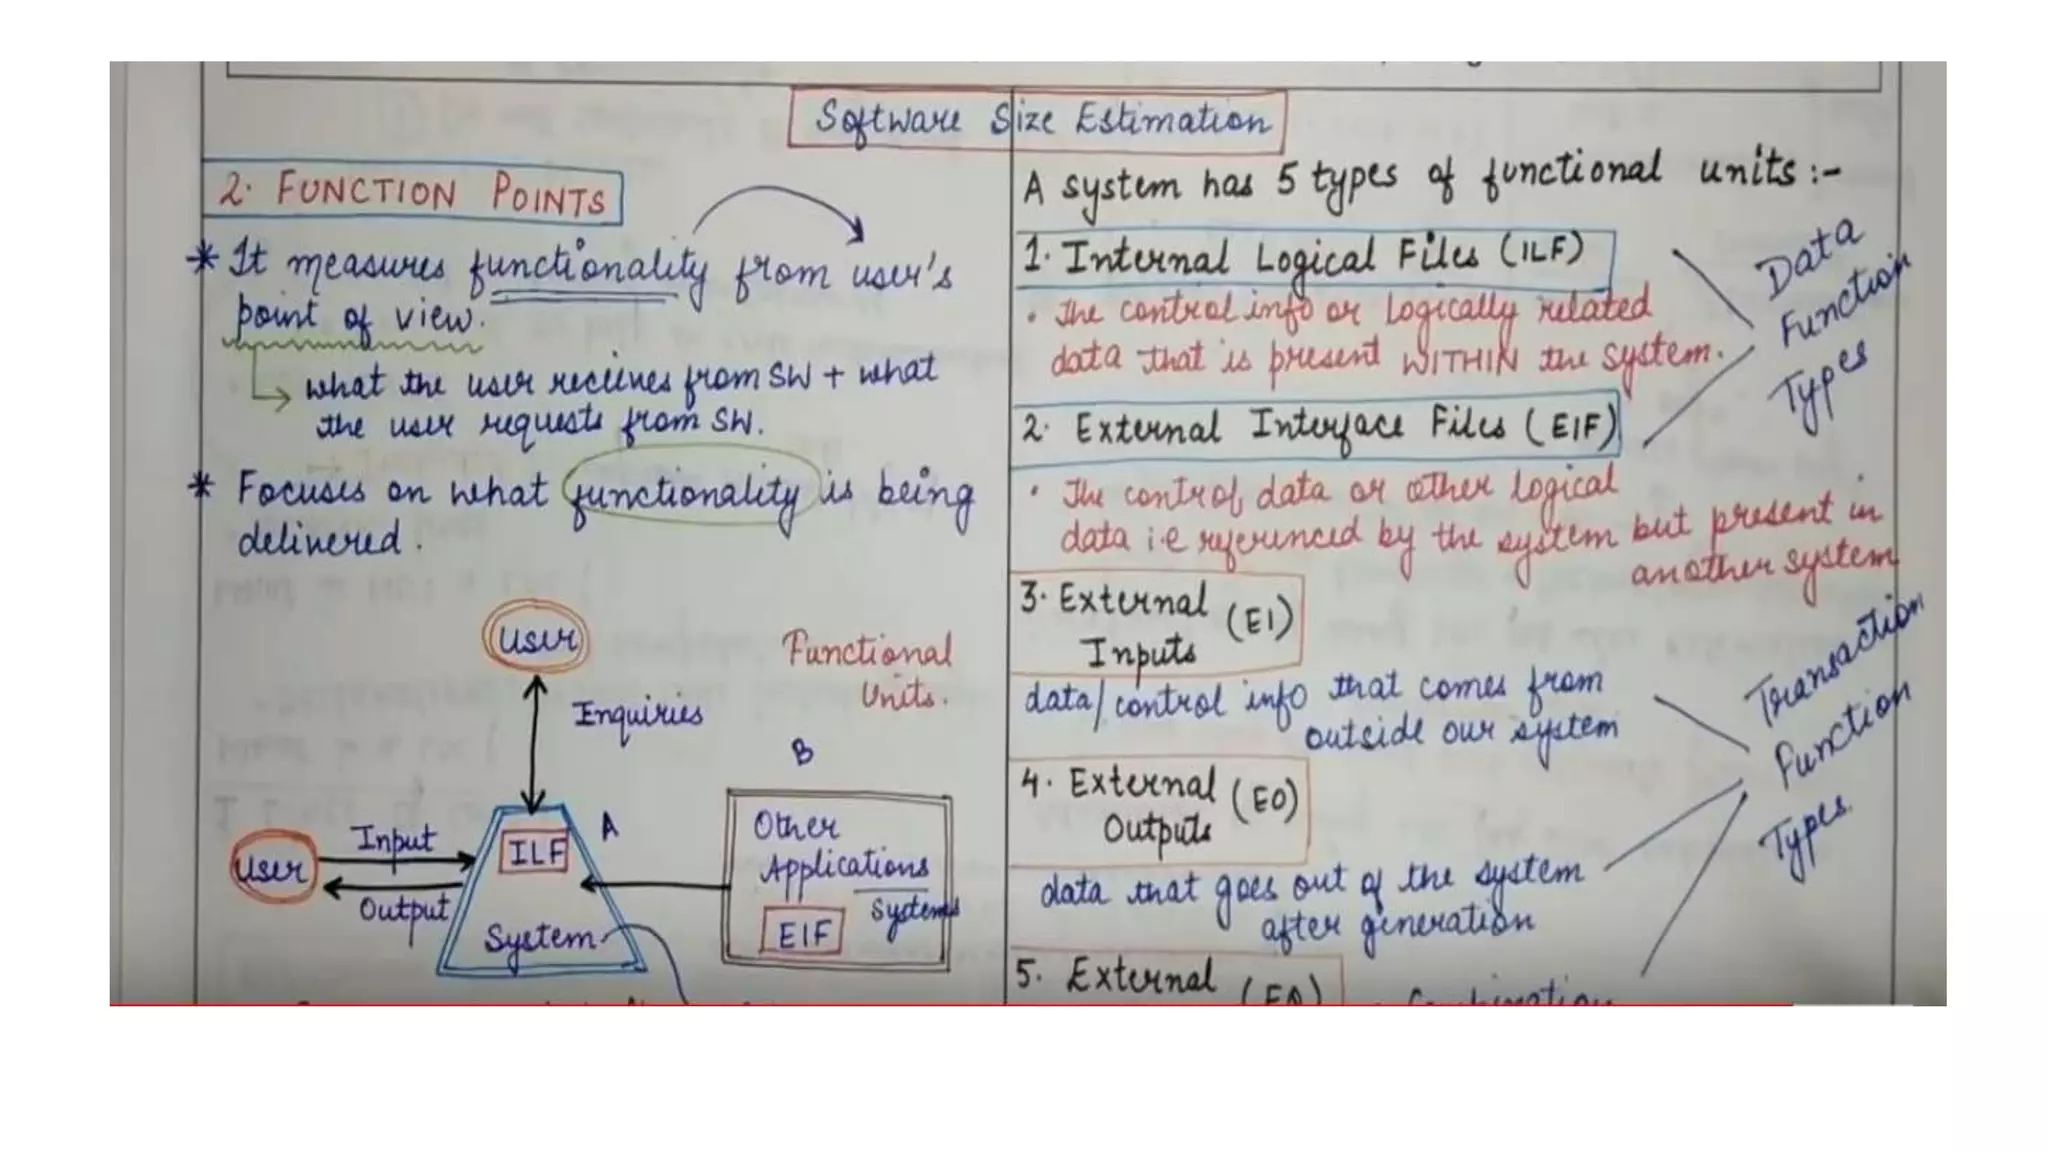 Software Size Estimation
2. FUNCTION POINTS
* It measures functionality from user's
point of view.
what the user receives from SW + what
the user requests from SW.
* Focuses on what functionality is being
delivered.
User
Functional
Units.
Enquiries
B
Other
Applications
Systems
EIF
A
ILF
System
User
Input
Output
A system has 5 types of functional units :-
1. Internal Logical Files (ILF)
• The control info or logically related
data that is present WITHIN the system.
2. External Interface Files (EIF)
• The control data or other logical
data i.e referenced by the system but present in
another system
Data
Function
Types
3. External
Inputs (EI)
data/control info that comes from
outside our system
4. External
Outputs (EO)
data that goes out of the system
after generation
5. External
Transaction
Function
Types.